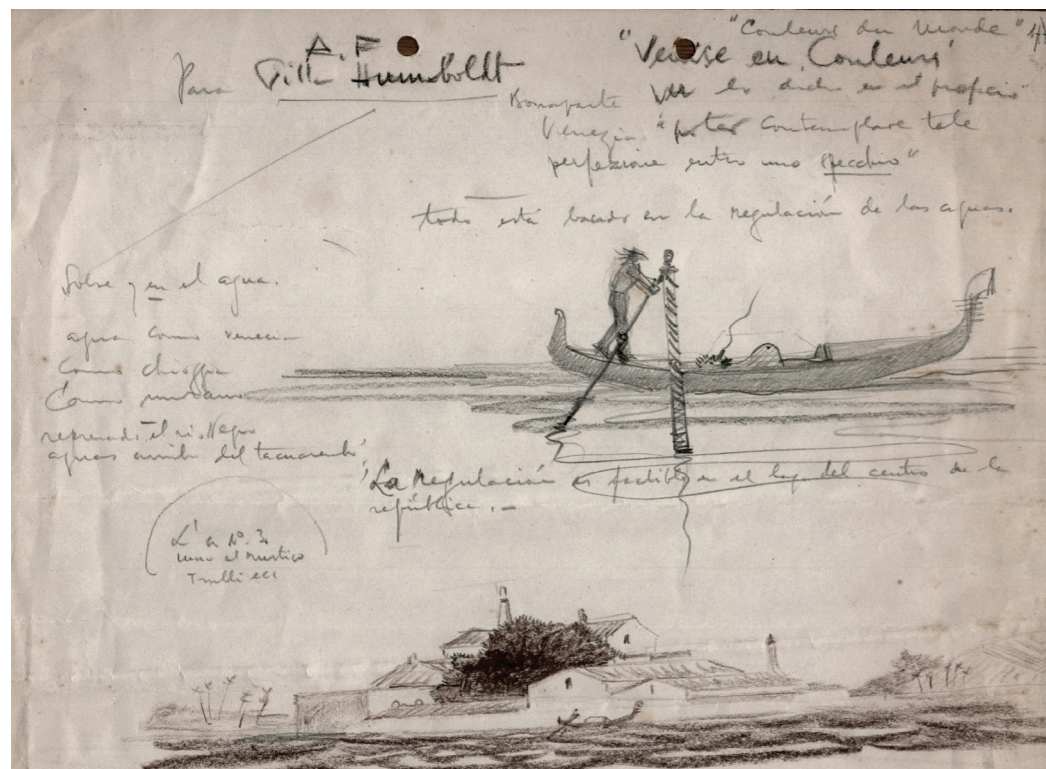 "Couleurs du Monde"
A.F
Para Villa Humboldt
"Venise en Couleurs"
Bonaparte lo dicho en el prefacio
Venezia. "poter contemplare tale
perfezione entro uno specchio"
todo está basado en la regulación de las aguas.
Sobre y en el agua.
agua como venecia
Como chioggia
Como murano
el río Negro
aguas arriba del tacuarembó
"La regulación es factible en el lago del centro de la
república. —
Nº. 3.
rustico
Trulli